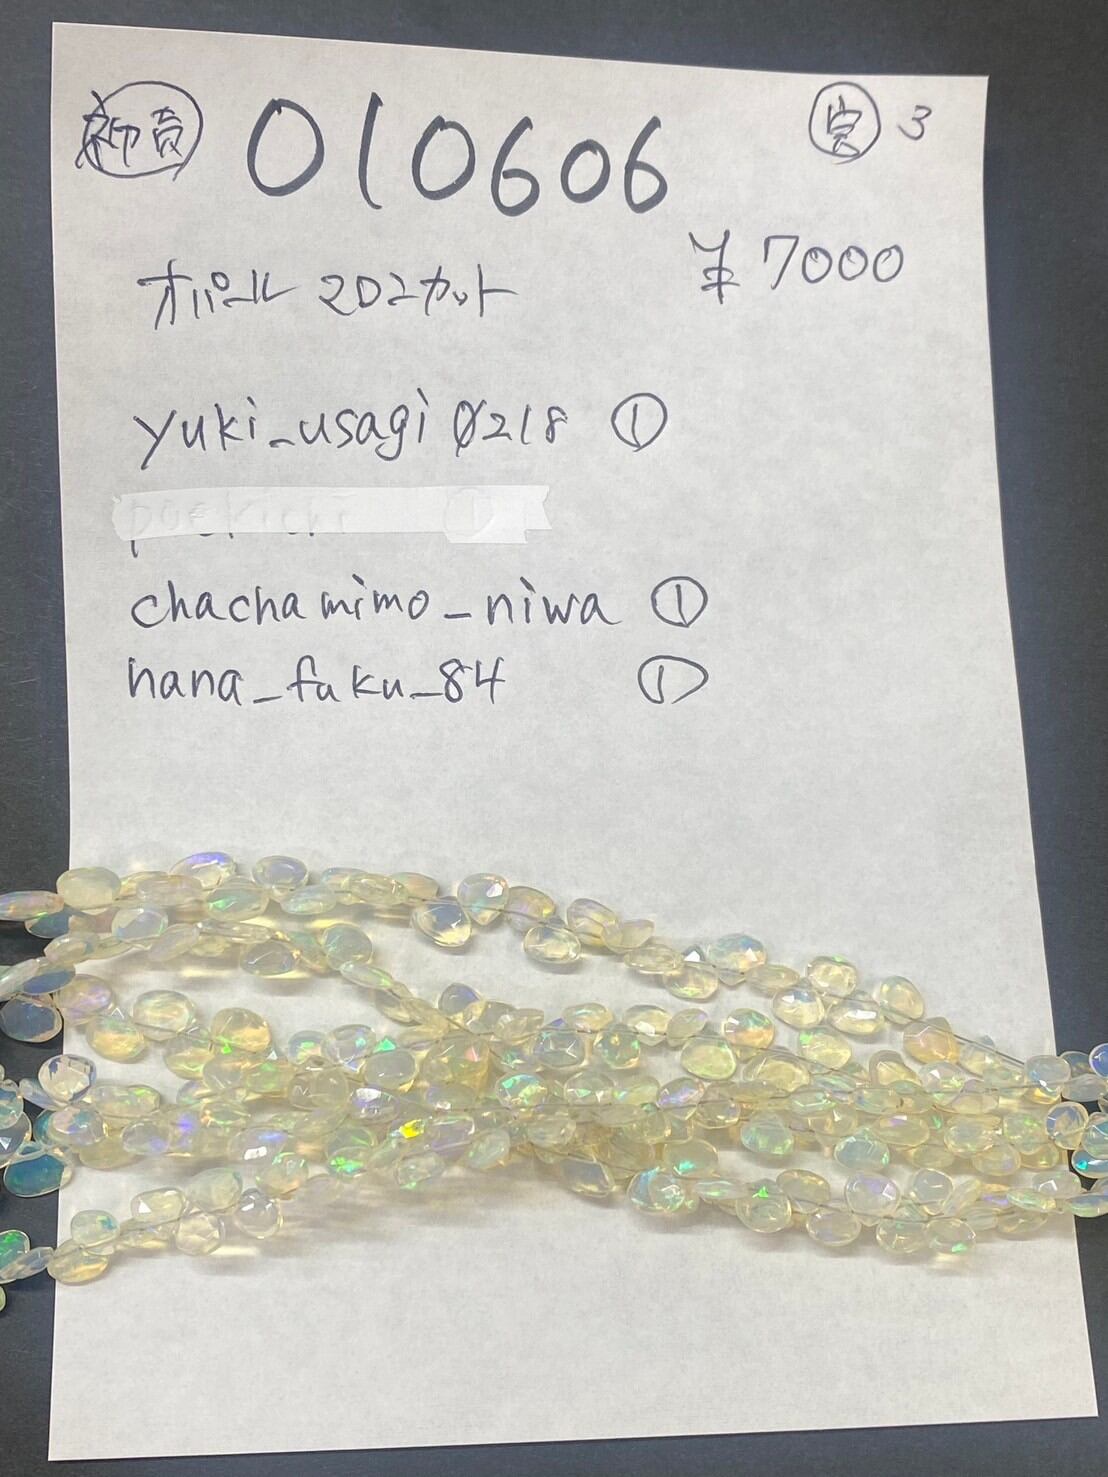 010606 3
オパール マロンカット ¥7000
yuki_usagi0218 ①
chachamimo_niwa ①
hana_fuku_84 ①